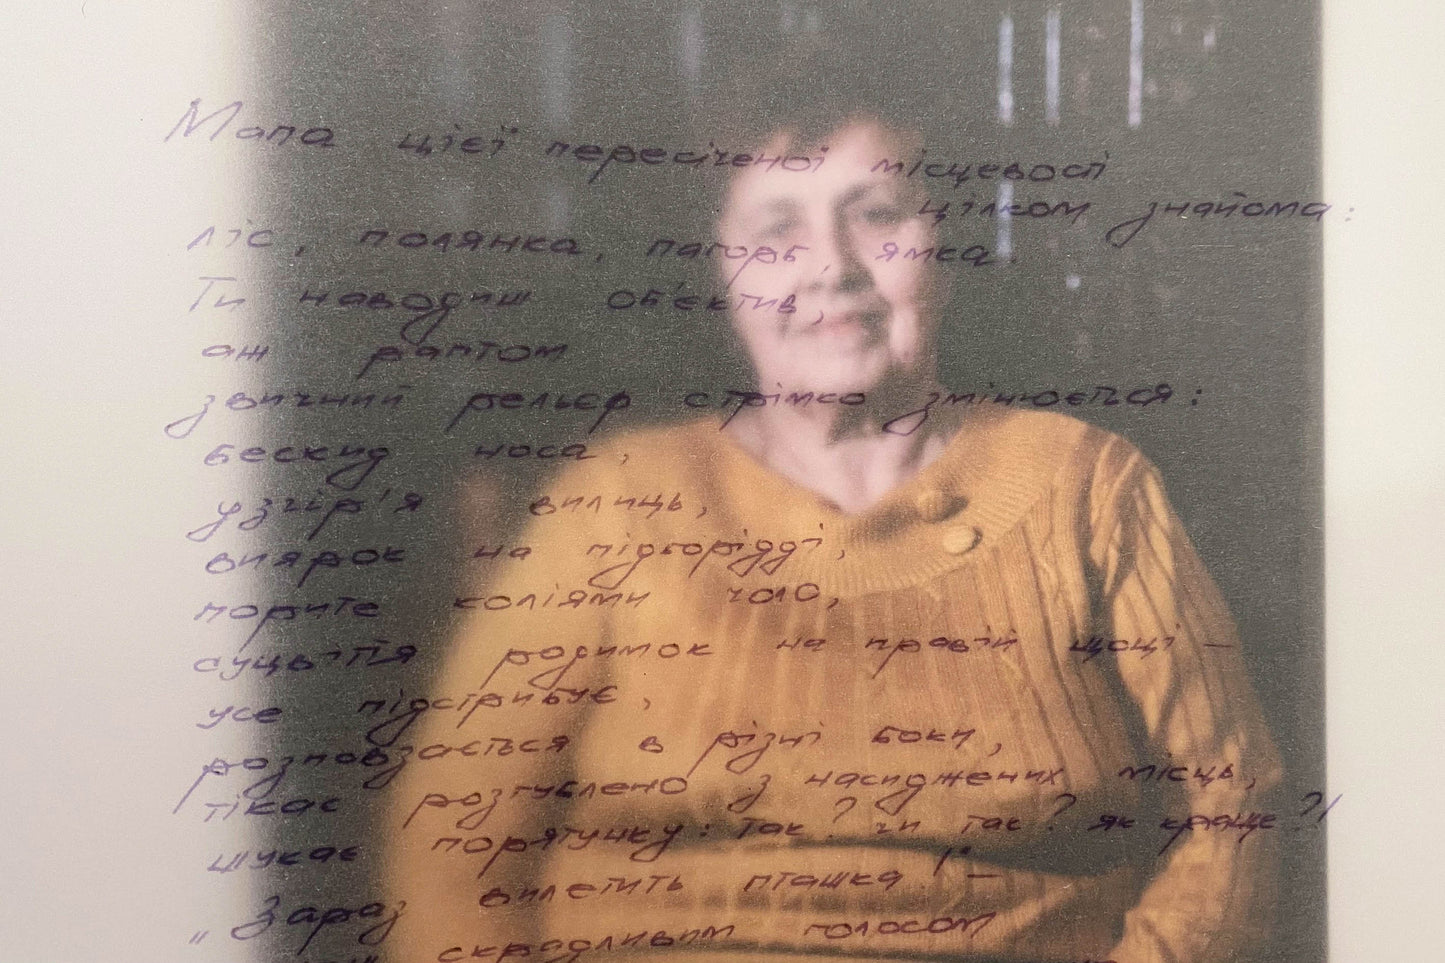 Мапа цієї пересіченої місцевості
цілком знайома:
ліс, полянка, пагорб, ямка.
Ти наводиш об'єктив,
аж раптом
звичний рельєф стрімко змінюється:
бескид носа,
узгір'я вилиць,
виярок на підборідді,
порите коліями чоло,
суцвіття родимок на правій щоці –
усе підстрибує,
розповзається в різні боки,
тікає розгублено з насиджених місць,
шукає порятунку: так? чи так? як краще?!
„Зараз вилетить пташка!" –
скрадливим голосом